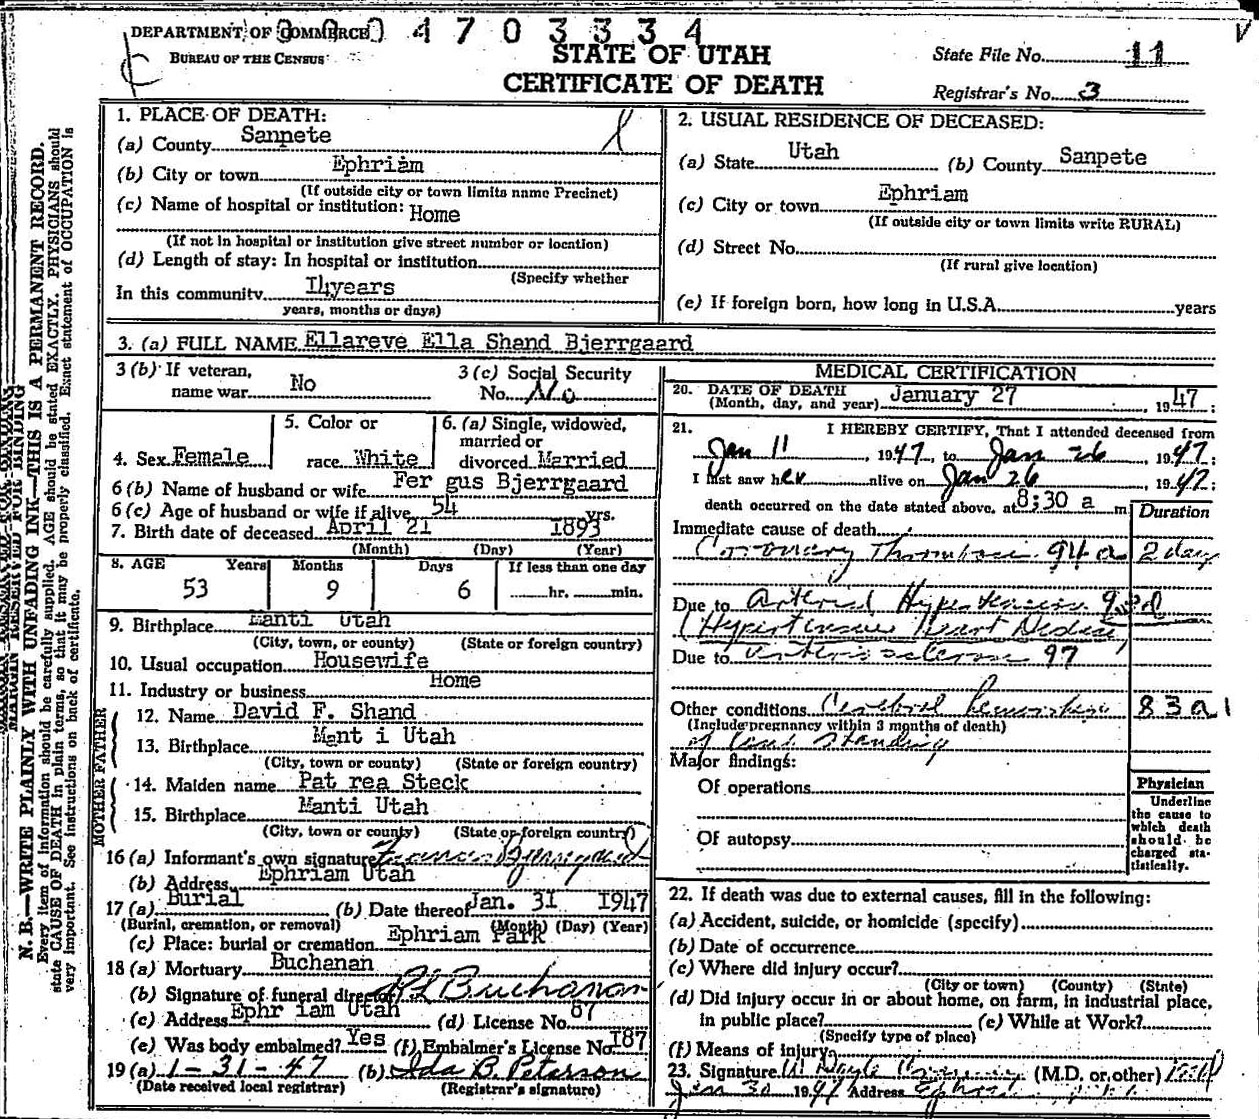 DEPARTMENT OF COMMERCE 4703334
BUREAU OF THE CENSUS
STATE OF UTAH
CERTIFICATE OF DEATH
State File No. 11
Registrar's No. 3
N. B.—WRITE PLAINLY WITH UNFADING INK—THIS IS A PERMANENT RECORD.
Every item of information should be carefully supplied. AGE should be stated EXACTLY. PHYSICIANS should
state CAUSE OF DEATH in plain terms, so that it may be properly classified. Exact statement of OCCUPATION is
very important. See instructions on back of certificate.
MARGIN RESERVED FOR BINDING
1. PLACE OF DEATH:
(a) County Sanpete
(b) City or town Ephriam
(If outside city or town limits name Precinct)
(c) Name of hospital or institution: Home
(If not in hospital or institution give street number or location)
(d) Length of stay: In hospital or institution
(Specify whether
In this community I4years
years, months or days)
2. USUAL RESIDENCE OF DECEASED:
(a) State Utah (b) County Sanpete
(c) City or town Ephriam
(If outside city or town limits write RURAL)
(d) Street No.
(If rural give location)
(e) If foreign born, how long in U.S.A. years
3. (a) FULL NAME Ellareve Ella Shand Bjerrgaard
3 (b) If veteran,
name war No
3 (c) Social Security
No. No
4. Sex Female
5. Color or
race White
6. (a) Single, widowed,
married or
divorced Married
6 (b) Name of husband or wife Fer gus Bjerrgaard
6 (c) Age of husband or wife if alive 54 yrs.
7. Birth date of deceased April 21 1893
(Month) (Day) (Year)
8. AGE Years Months Days If less than one day
53 9 6 hr. min.
9. Birthplace Manti Utah
(City, town, or county) (State or foreign country)
10. Usual occupation Housewife
11. Industry or business Home
FATHER
12. Name David F. Shand
13. Birthplace Mant i Utah
(City, town or county) (State or foreign country)
MOTHER
14. Maiden name Pat rea Steck
15. Birthplace Manti Utah
(City, town or county) (State or foreign country)
16 (a) Informant's own signature
(b) Address Ephriam Utah
17 (a) Burial (b) Date thereof Jan. 31 1947
(Burial, cremation, or removal) (Month) (Day) (Year)
(c) Place: burial or cremation Ephriam Park
18 (a) Mortuary Buchanan
(b) Signature of funeral director Buchanan
(c) Address Ephr iam Utah (d) License No. 87
(e) Was body embalmed? Yes (f) Embalmer's License No. I87
19 (a) 1-31-47 (b) Ida B. Peterson
(Date received local registrar) (Registrar's signature)
MEDICAL CERTIFICATION
20. DATE OF DEATH
(Month, day, and year) January 27, 1947;
21. I HEREBY CERTIFY, That I attended deceased from
Jan 11, 1947, to Jan 26, 1947;
I last saw her alive on Jan 26, 1947;
death occurred on the date stated above, at 8:30 a m.
Duration
Immediate cause of death
Coronary Thrombosis 94a 2 days
Due to Arterial Hypertension
(Hypertensive Heart Disease)
Due to Arteriosclerosis 97
Other conditions Cerebral hemorrhage 83a1
(Include pregnancy within 3 months of death)
of standing
Major findings:
Of operations
Of autopsy
Physician
Underline
the cause to
which death
should be
charged sta-
tistically.
22. If death was due to external causes, fill in the following:
(a) Accident, suicide, or homicide (specify)
(b) Date of occurrence
(c) Where did injury occur?
(City or town) (County) (State)
(d) Did injury occur in or about home, on farm, in industrial place,
in public place? (e) While at Work?
(Specify type of place)
(f) Means of injury
23. Signature (M.D. or other)
Jan 30 1947 Address